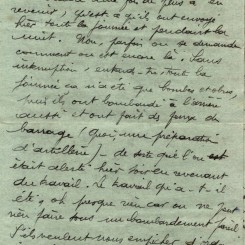 revenir ! qu'est-ce qu'ils ont envoyé
hier toute la journée et pendant la
nuit. Non, parfois on se demande
comment on est encore là ! Sans
interruption ! entends-tu toute la
journée ce n'acte que bombes et obus,
nuit ils ont bombardé à l'arrière
aussi et ont fait des feux de
barrage (quoi, une préparation
d'artillerie) - de sorte que l'on
était alerté, hier soir en revenant
du travail. Le travail qu'a-t-il
été, oh presque rien car on ne peut
rien faire sous un bombardement pareil
S'ils veulent nous empêcher d'